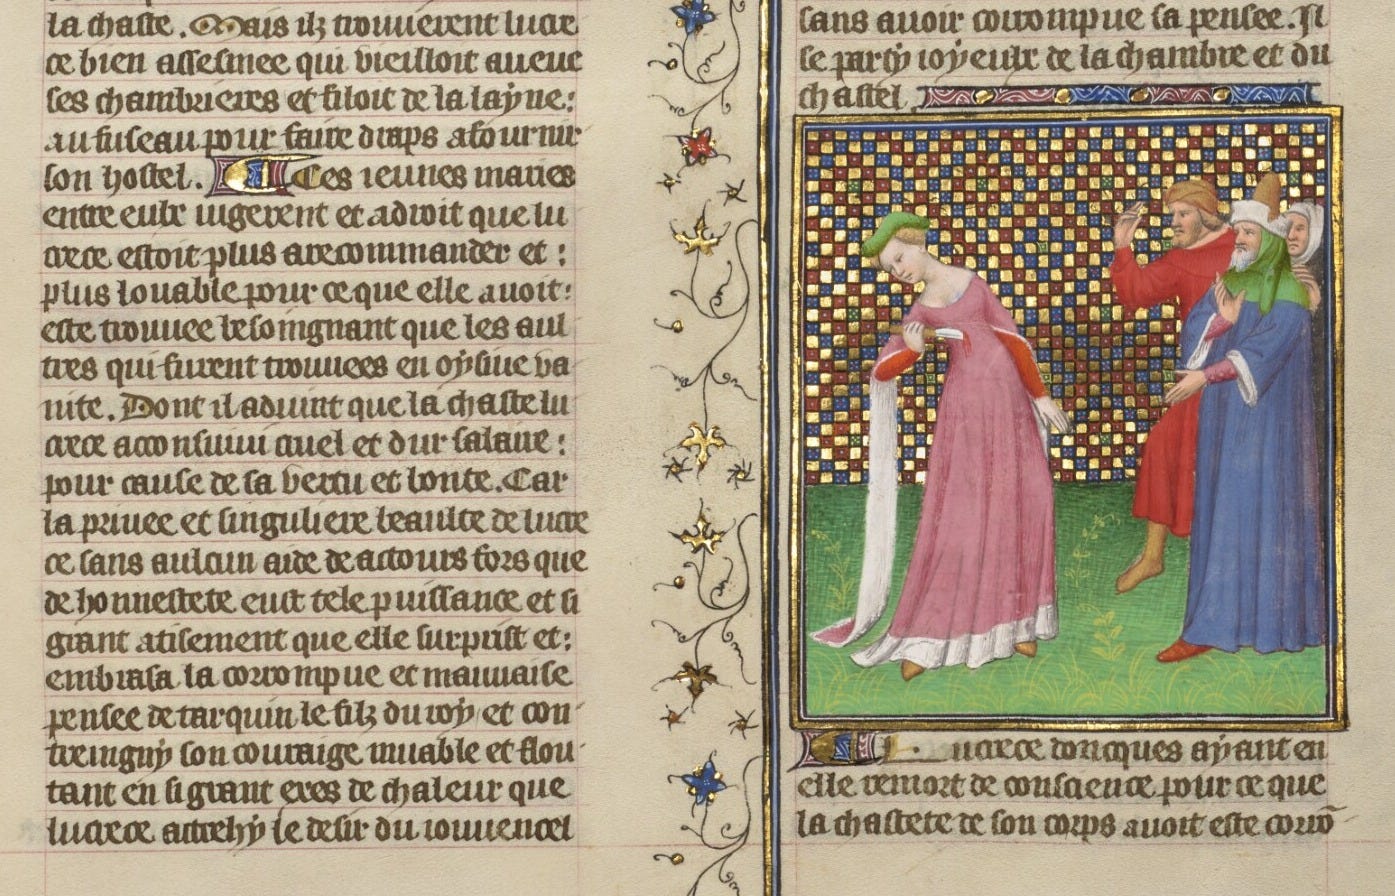 la chaste. Mais ilz trouuerent lucre
ce bien assesmee qui vieilloit auecc
ses chambrieres et filoit de la layne:
au fuseau pour faire draps a fournir
son hostel. Ces ieunes maries
entre eulx iugerent et adroit que lu
crece estoit plus a recommander et :
plus louable pour ce que elle auoit:
este trouuee besoingnant que les aul
tres qui furent trouuees en oysiue va
nite. Dont il aduint que la chaste lu
crece acconsuiui cruel et dur salaire :
pour cause de sa vertu et bonte. Car
la priuee et singuliere beaulte de lucre
ce sans aulcun aide de actours fors que
de honnestete eust tele puissance et si
grant atisement que elle surprist et:
embrasa la corrompue et mauuaise
pensee de tarquin le filz du roy et con
treingny son couraige muable et flou
tant en si grant exes de chaleur que
lucrece accrehy le desir du iouuencel
sans auoir corrompue sa pensee. Il
se party ioyeulx de la chambre et du
chastel
Lucrece doncques ayant en
elle remort de conscience pour ce que
la chastete de son corps auoit este corrō